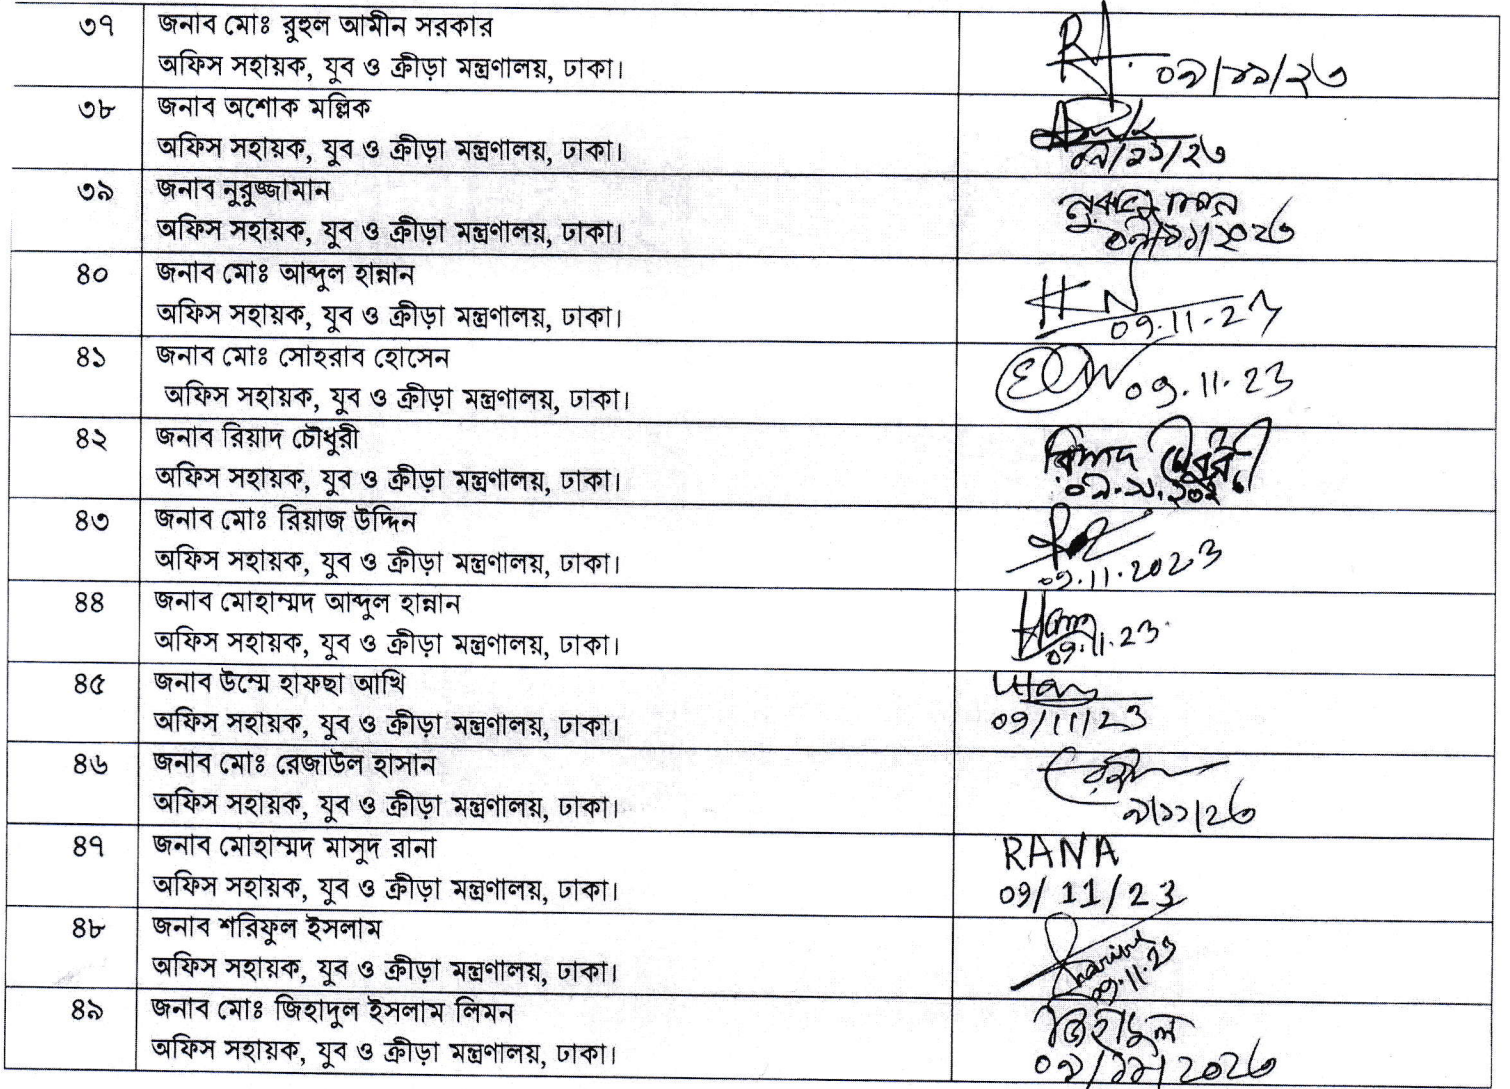 ৩৭ জনাব মোঃ রুহুল আমীন সরকার
অফিস সহায়ক, যুব ও ক্রীড়া মন্ত্রণালয়, ঢাকা। ০৯/১১/২৩
৩৮ জনাব অশোক মল্লিক
অফিস সহায়ক, যুব ও ক্রীড়া মন্ত্রণালয়, ঢাকা। ০৯/১১/২৩
৩৯ জনাব নুরুজ্জামান
অফিস সহায়ক, যুব ও ক্রীড়া মন্ত্রণালয়, ঢাকা। ০৯/১১/২০২৩
৪০ জনাব মোঃ আব্দুল হান্নান
অফিস সহায়ক, যুব ও ক্রীড়া মন্ত্রণালয়, ঢাকা। 09.11.23
৪১ জনাব মোঃ সোহরাব হোসেন
অফিস সহায়ক, যুব ও ক্রীড়া মন্ত্রণালয়, ঢাকা। 09.11.23
৪২ জনাব রিয়াদ চৌধুরী রিয়াদ চৌধুরী
অফিস সহায়ক, যুব ও ক্রীড়া মন্ত্রণালয়, ঢাকা।
৪৩ জনাব মোঃ রিয়াজ উদ্দিন
অফিস সহায়ক, যুব ও ক্রীড়া মন্ত্রণালয়, ঢাকা। 09.11.2023
৪৪ জনাব মোহাম্মদ আব্দুল হান্নান
অফিস সহায়ক, যুব ও ক্রীড়া মন্ত্রণালয়, ঢাকা। 09.11.23
৪৫ জনাব উম্মে হাফছা আখি
অফিস সহায়ক, যুব ও ক্রীড়া মন্ত্রণালয়, ঢাকা। 09/11/23
৪৬ জনাব মোঃ রেজাউল হাসান
অফিস সহায়ক, যুব ও ক্রীড়া মন্ত্রণালয়, ঢাকা। ৯/১১/২৩
৪৭ জনাব মোহাম্মদ মাসুদ রানা RANA
অফিস সহায়ক, যুব ও ক্রীড়া মন্ত্রণালয়, ঢাকা। 09/11/23
৪৮ জনাব শরিফুল ইসলাম
অফিস সহায়ক, যুব ও ক্রীড়া মন্ত্রণালয়, ঢাকা। 09.11.23
৪৯ জনাব মোঃ জিহাদুল ইসলাম লিমন জিহাদুল
অফিস সহায়ক, যুব ও ক্রীড়া মন্ত্রণালয়, ঢাকা। ০৯/১১/২০২৩